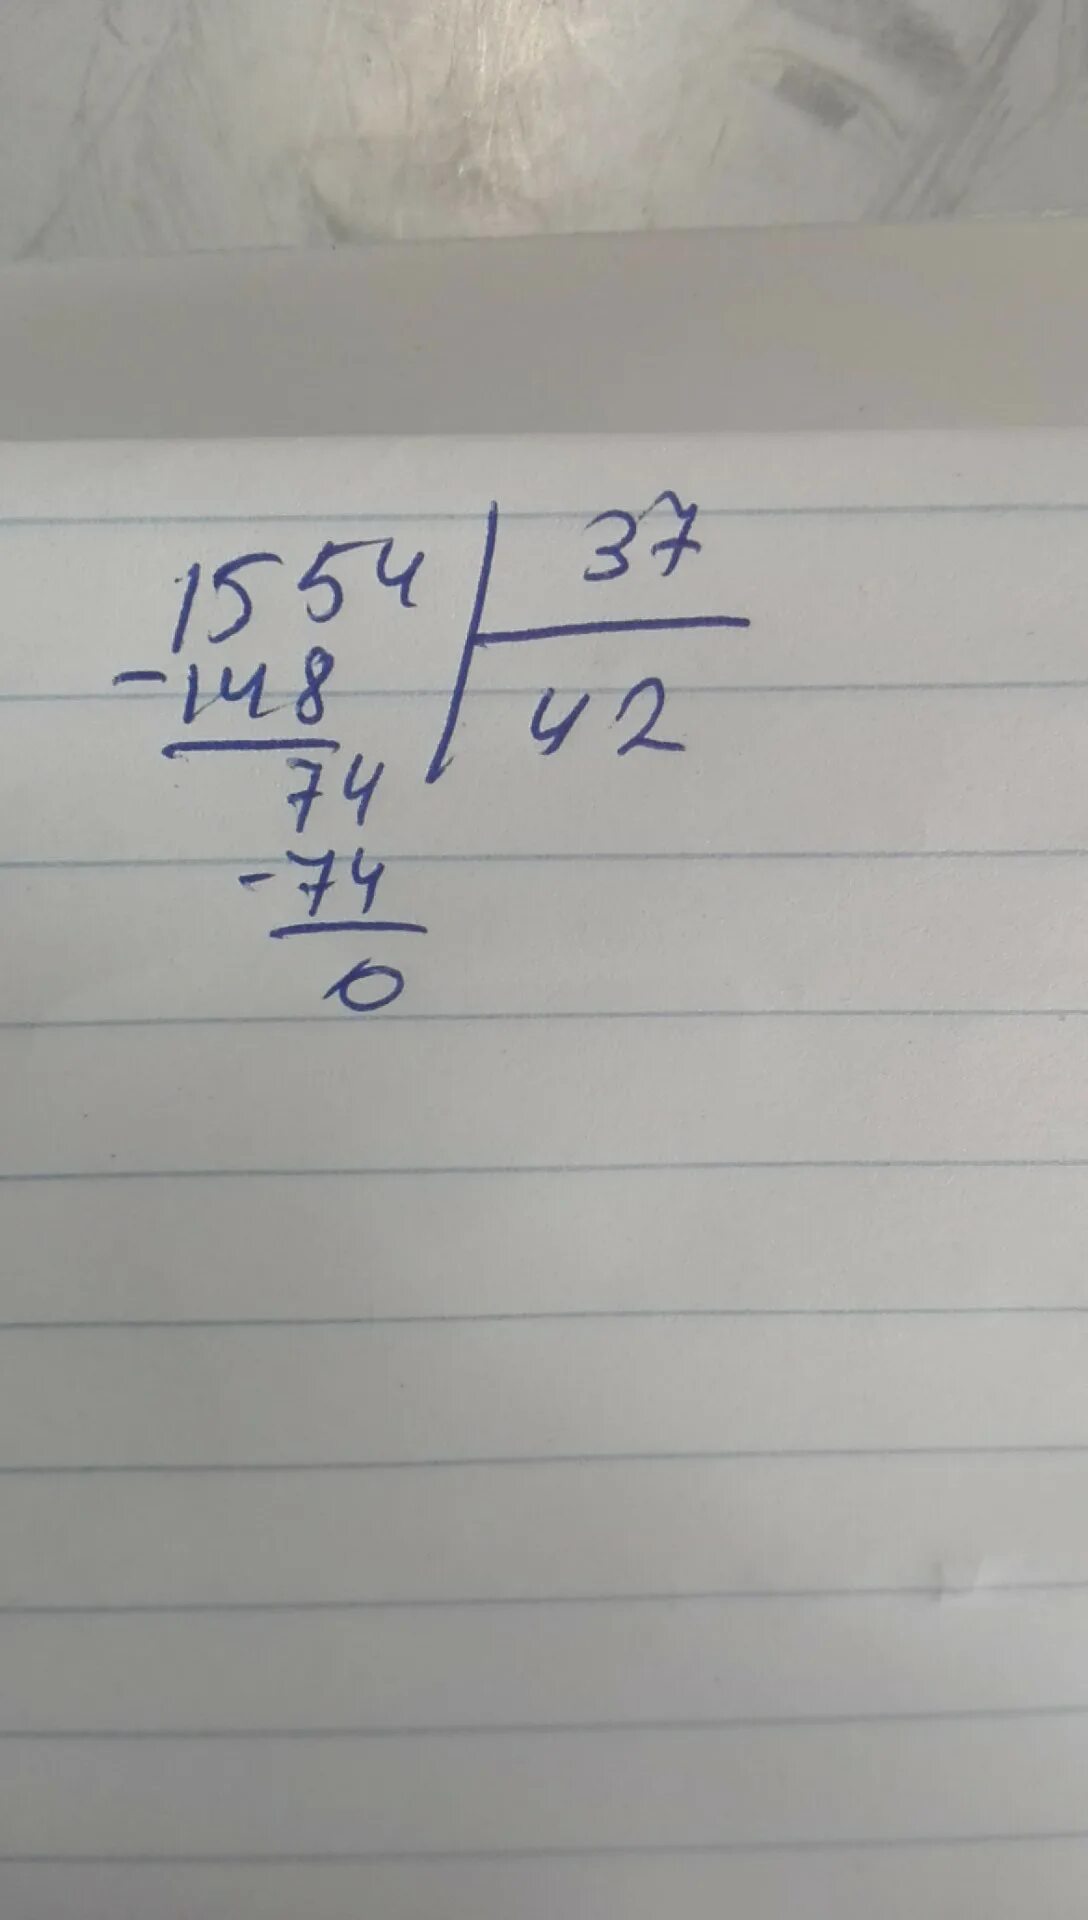 1554 37
-148 42
74
-74
0